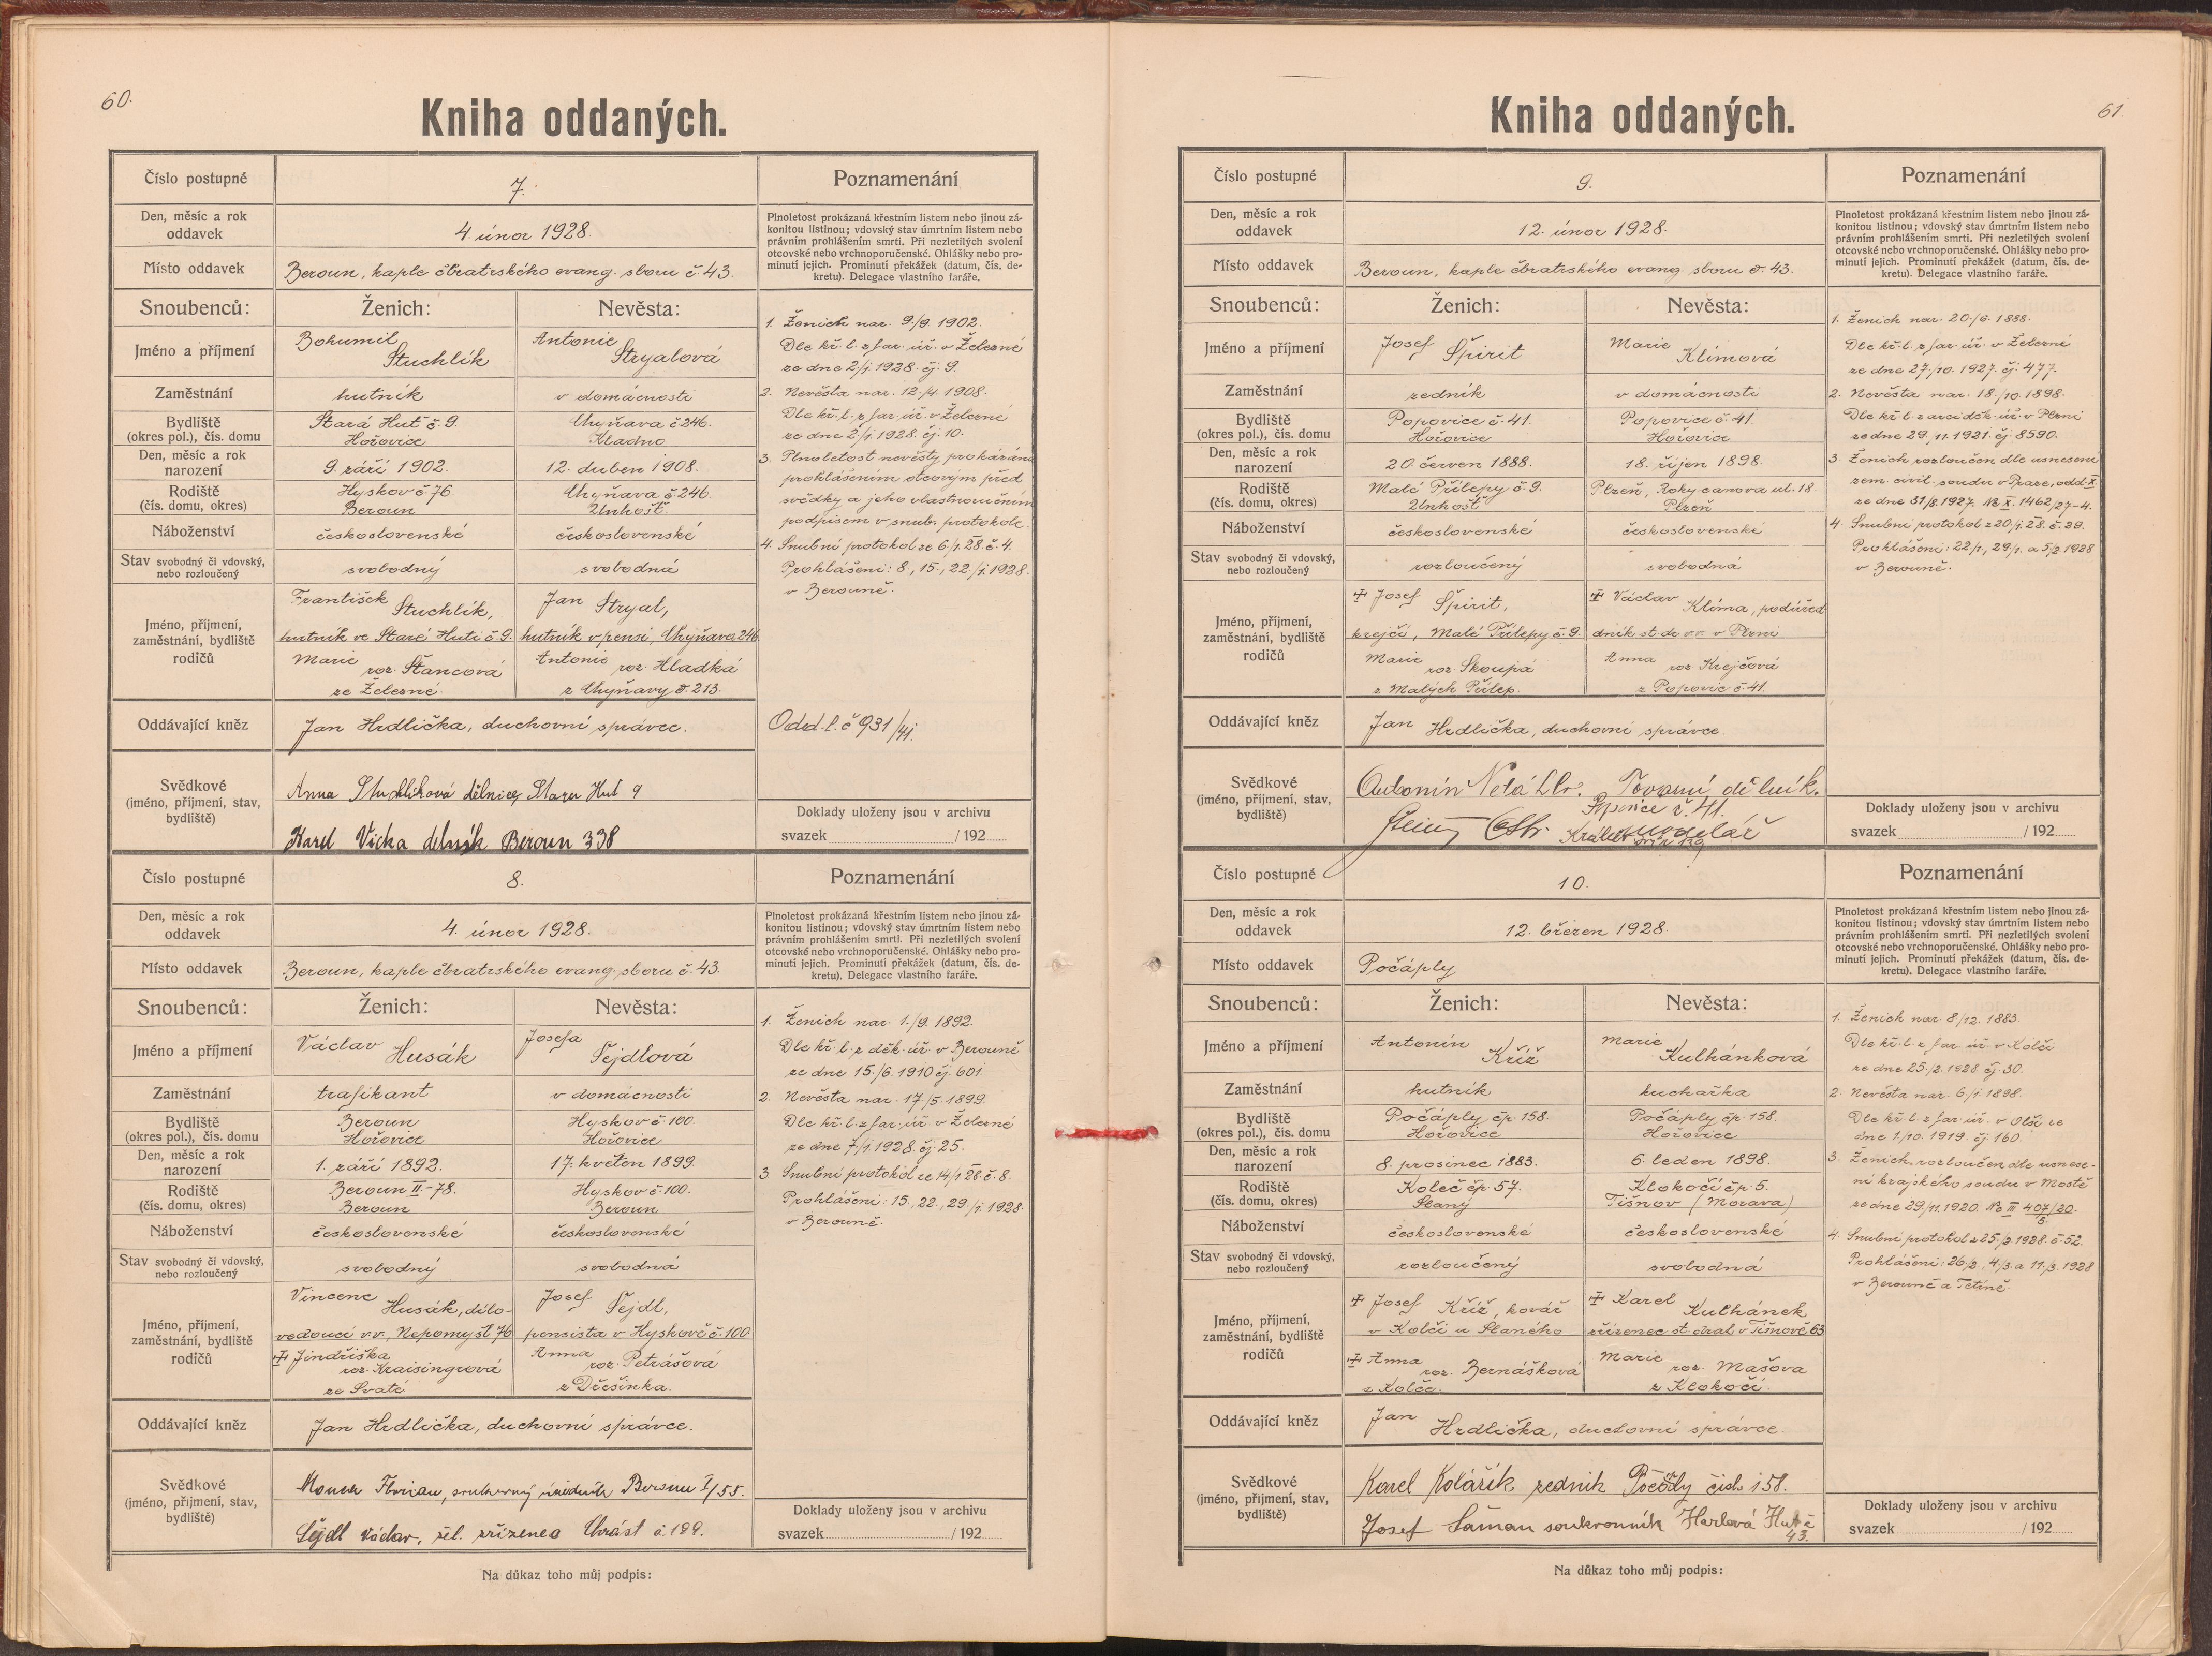 60.
Kniha oddaných.
Číslo postupné
7.
Poznamenání
Den, měsíc a rok
oddavek
4. únor 1928.
Plnoletost prokázaná křestním listem nebo jinou zá-
konitou listinou; vdovský stav úmrtním listem nebo
právním prohlášením smrti. Při nezletilých svolení
otcovské nebo vrchnoporučenské. Ohlášky nebo pro-
minutí jejich. Prominutí překážek (datum, čís. de-
kretu). Delegace vlastního faráře.
Místo oddavek
Beroun, kaple čbratrského evang. sboru č. 43.
Snoubenců:
Ženich:
Nevěsta:
Jméno a příjmení
Bohumil
Stuchlík
Antonie
Stryalová
Zaměstnání
hutník
v domácnosti
Bydliště
(okres pol.), čís. domu
Stará Huť č 9.
Hořovice
Chyňava č 246.
Kladno
Den, měsíc a rok
narození
9. září 1902.
12. duben 1908.
Rodiště
(čís. domu, okres)
Hyskov č 76
Beroun
Chyňava č 246.
Unhošť.
Náboženství
československé
československé
Stav svobodný či vdovský,
nebo rozloučený
svobodný
svobodná
Jméno, příjmení,
zaměstnání, bydliště
rodičů
František
Stuchlík,
hutník ve Staré Huti č 9.
Marie
roz. Štancová
ze Železné.
Jan Stryal,
hutník v pensi, Chyňava 246
Antonie roz. Hladká
z Chyňavy č. 213.
1. Ženich nar. 9./9. 1902.
Dle kř. l. z far. úř. v Železné
ze dne 2/1. 1928. čj. 9.
2. Nevěsta nar. 12./4. 1908.
Dle kř. l. z far. úř. v Železné
ze dne 2/1. 1928. čj. 10.
3. Plnoletost nevěsty prokázána
prohlášením otcovým před
svědky a jeho vlastnoručním
podpisem v snub. protokole.
4. Snubní protokol ze 6/1. 28. č. 4.
Prohlášení: 8., 15., 22./1. 1928.
v Berouně.
Oddávající kněz
Jan Hrdlička, duchovní správce.
Odd. l. č 931/41.
Svědkové
(jméno, příjmení, stav,
bydliště)
Anna Stuchlíková dělnice, Stara Huť 9
Karel Vicka dělník Beroun 338
Doklady uloženy jsou v archivu
svazek /192
Číslo postupné
8.
Poznamenání
Den, měsíc a rok
oddavek
4. únor 1928.
Plnoletost prokázaná křestním listem nebo jinou zá-
konitou listinou; vdovský stav úmrtním listem nebo
právním prohlášením smrti. Při nezletilých svolení
otcovské nebo vrchnoporučenské. Ohlášky nebo pro-
minutí jejich. Prominutí překážek (datum, čís. de-
kretu). Delegace vlastního faráře.
Místo oddavek
Beroun, kaple čbratrského evang. sboru č. 43.
Snoubenců:
Ženich:
Nevěsta:
Jméno a příjmení
Václav
Husák
Josefa
Šejdlová
Zaměstnání
trafikant
v domácnosti
Bydliště
(okres pol.), čís. domu
Beroun
Hořovice
Hyskov č 100.
Hořovice
Den, měsíc a rok
narození
1. září 1892.
17. květen 1899.
Rodiště
(čís. domu, okres)
Beroun II.-78.
Beroun
Hyskov č. 100.
Beroun
Náboženství
československé
československé
Stav svobodný či vdovský,
nebo rozloučený
svobodný
svobodná
Jméno, příjmení,
zaměstnání, bydliště
rodičů
Vincenc
Husák, dílo-
vedoucí v.v., Nepomyšl 76
Jindřiška
roz. Kraisingrová
ze Svaté
Josef Šejdl,
pensista v Hyskově č. 100
Anna roz. Petrášová
z Dřešínka.
1. Ženich nar. 1./9. 1892.
Dle kř. l. z děk. úř. v Berouně
ze dne 15./6. 1910 čj. 601.
2. Nevěsta nar. 17./5. 1899.
Dle kř. l. z far. úř. v Železné
ze dne 7/1. 1928. čj. 25.
3. Snubní protokol ze 14/1. 28. č. 8.
Prohlášení: 15., 22., 29./1. 1928.
v Berouně.
Oddávající kněz
Jan Hrdlička, duchovní správce.
Svědkové
(jméno, příjmení, stav,
bydliště)
Florian, soukromý úředník Beroun I/55.
Šejdl Václav, žel. zřízenec Chrást č. 199.
Doklady uloženy jsou v archivu
svazek /192
Na důkaz toho můj podpis:
61.
Kniha oddaných.
Číslo postupné
9.
Poznamenání
Den, měsíc a rok
oddavek
12. únor 1928.
Plnoletost prokázaná křestním listem nebo jinou zá-
konitou listinou; vdovský stav úmrtním listem nebo
právním prohlášením smrti. Při nezletilých svolení
otcovské nebo vrchnoporučenské. Ohlášky nebo pro-
minutí jejich. Prominutí překážek (datum, čís. de-
kretu). Delegace vlastního faráře.
Místo oddavek
Beroun, kaple čbratrského evang. sboru č. 43.
Snoubenců:
Ženich:
Nevěsta:
Jméno a příjmení
Josef Špirit
Marie
Klímová
Zaměstnání
zedník
v domácnosti
Bydliště
(okres pol.), čís. domu
Popovice č. 41.
Hořovice
Popovice č. 41.
Hořovice
Den, měsíc a rok
narození
20. červen 1888.
18. říjen 1898.
Rodiště
(čís. domu, okres)
Malé Přílepy č. 9.
Unhošť
Plzeň, Rokycanova ul. 18
Plzeň
Náboženství
československé
československé
Stav svobodný či vdovský,
nebo rozloučený
rozloučený
svobodná
Jméno, příjmení,
zaměstnání, bydliště
rodičů
Josef Špirit,
krejčí, Malé Přílepy č. 9.
Marie
roz. Skoupá
z Malých Přílep.
Václav Klíma, podúřed-
dník st. dr. v.v. v Plzni
Anna roz. Krejčová
z Popovic č. 41.
1. Ženich nar. 20./6. 1888.
Dle kř. l. z far. úř. v Železné
ze dne 27./10. 1927. čj. 477.
2. Nevěsta nar. 18./10. 1898.
Dle kř. l. z arciděk. úř. v Plzni
ze dne 29./11. 1921. čj. 8590.
3. Ženich rozloučen dle usnesení
zem. civil. soudu v Praze, odd. X.
ze dne 31/8. 1927. Nc X. 1462/27-4.
4. Snubní protokol z 20/1. 28. č. 29.
Prohlášení: 22/1., 29/1. a 5/2. 1928
v Berouně.
Oddávající kněz
Jan Hrdlička, duchovní správce.
Svědkové
(jméno, příjmení, stav,
bydliště)
Antonín Tovarní dělník.
č. 41.
modelář
Doklady uloženy jsou v archivu
svazek /192
Číslo postupné
10.
Poznamenání
Den, měsíc a rok
oddavek
12. březen 1928.
Plnoletost prokázaná křestním listem nebo jinou zá-
konitou listinou; vdovský stav úmrtním listem nebo
právním prohlášením smrti. Při nezletilých svolení
otcovské nebo vrchnoporučenské. Ohlášky nebo pro-
minutí jejich. Prominutí překážek (datum, čís. de-
kretu). Delegace vlastního faráře.
Místo oddavek
Počáply
Snoubenců:
Ženich:
Nevěsta:
Jméno a příjmení
Antonín
Kříž
Marie
Kulhánková
Zaměstnání
hutník
kuchařka
Bydliště
(okres pol.), čís. domu
Počáply čp. 158.
Hořovice
Počáply čp 158.
Hořovice
Den, měsíc a rok
narození
8. prosinec 1883.
6. leden 1898.
Rodiště
(čís. domu, okres)
Koleč čp. 57.
Slaný
Klokočí čp. 5.
Tišnov (Morava)
Náboženství
československé
československé
Stav svobodný či vdovský,
nebo rozloučený
rozloučený
svobodná
Jméno, příjmení,
zaměstnání, bydliště
rodičů
Josef Kříž, kovář
v Kolči u Slaného
Anna
roz. Bernášková
z Kolče.
Karel
Kulhánek
zřízenec st. drah v Tišnově 63
Marie roz. Mašova
z Klokočí.
1. Ženich nar. 8/12. 1883.
Dle kř. l. z far. úř. v Kolči
ze dne 25./2. 1928 čj. 30.
2. Nevěsta nar. 6/1. 1898.
Dle kř. l. z far. úř. v Olší ze
dne 1./10. 1919. čj. 160.
3. Ženich rozloučen dle usnese-
ní krajského soudu v Mostě
ze dne 29./11. 1920. Nc III 407/20.
6
4. Snubní protokol z 25./2. 1928. č. 52.
Prohlášení: 26/2., 4/3. a 11./3. 1928
v Berouně a Tetíně.
Oddávající kněz
Jan Hrdlička, duchovní správce.
Svědkové
(jméno, příjmení, stav,
bydliště)
Karel Kolářík zedník Počáply čislo 158.
Josef Šaman soukromník Karlová Huť č
43.
Doklady uloženy jsou v archivu
svazek /192
Na důkaz toho můj podpis: